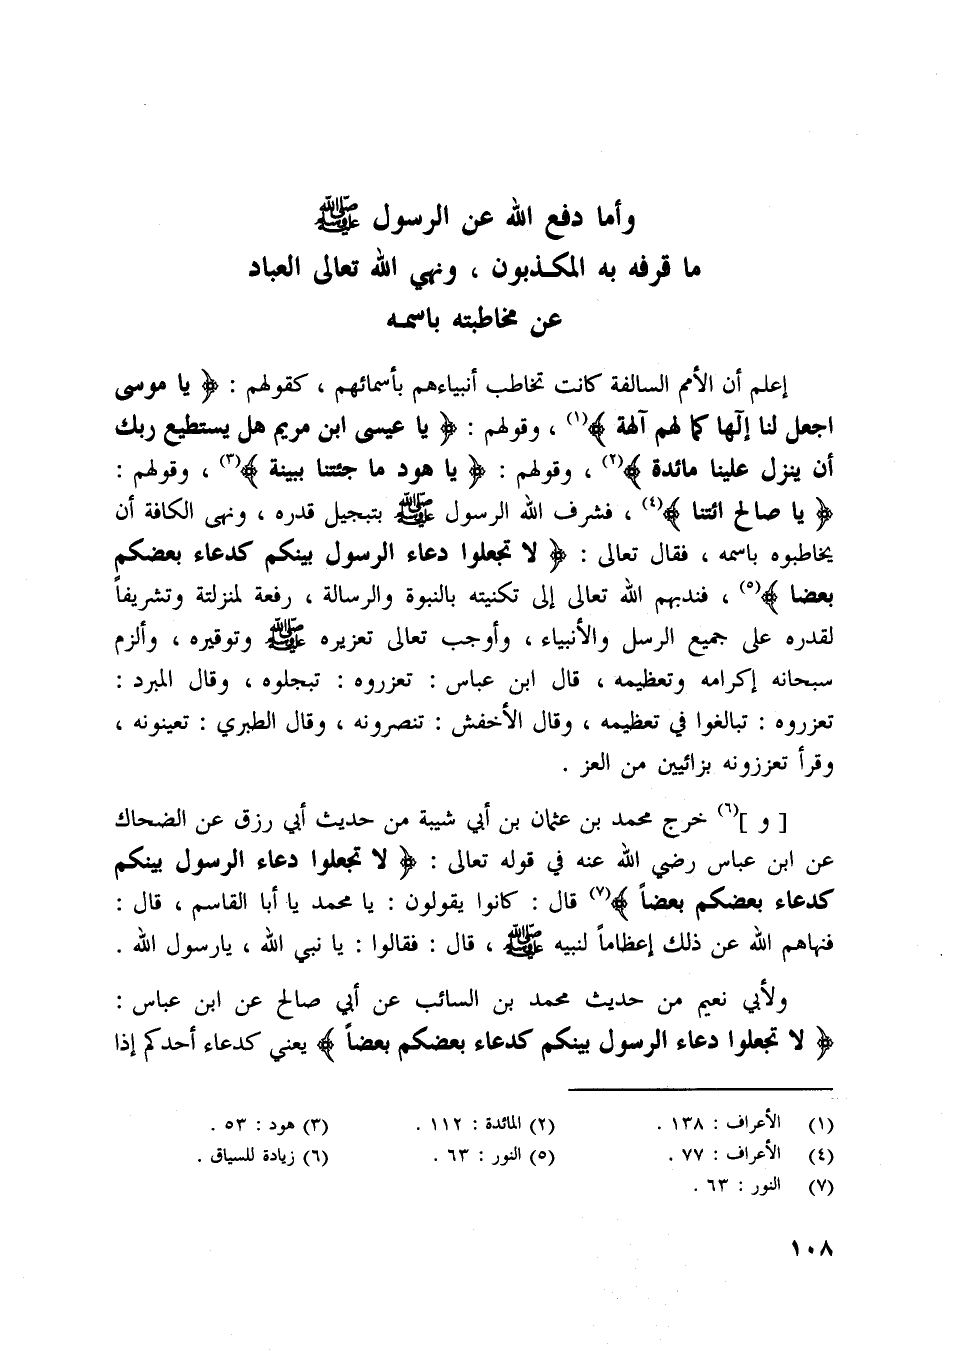 وأما دفع الله عن الرسول ﷺ
ما قرفه به المكـذبون ، ونهي الله تعالى العباد
عن مخاطبته باسمـه
إعلم أن الأمم السالفة كانت تخاطب أنبياءهم بأسمائهم ، كقولهم : ﴿ يا موسى
اجعل لنا إلٓها كما لهم آلهة ﴾(١) ، وقولهم : ﴿ يا عيسى ابن مريم هل يستطيع ربك
أن ينزل علينا مائدة ﴾(٢) ، وقولهم : ﴿ يا هود ما جئتنا ببينة ﴾(٣) ، وقولهم :
﴿ يا صالح ائتنا ﴾(٤) ، فشرف الله الرسول ﷺ بتبجيل قدره ، ونهى الكافة أن
يخاطبوه باسمه ، فقال تعالى : ﴿ لا تجعلوا دعاء الرسول بينكم كدعاء بعضكم
بعضا ﴾(٥) ، فندبهم الله تعالى إلى تكنيته بالنبوة والرسالة ، رفعة لمنزلتة وتشريفاً
لقدره على جميع الرسل والأنبياء ، وأوجب تعالى تعزيره ﷺ وتوقيره ، وألزم
سبحانه إكرامه وتعظيمه ، قال ابن عباس : تعزروه : تبجلوه ، وقال المبرد :
تعزروه : تبالغوا في تعظيمه ، وقال الأخفش : تنصرونه ، وقال الطبري : تعينونه ،
وقرأ تعززونه بزائيين من العز .
[ و ](٦) خرج محمد بن عثمان بن أبي شيبة من حديث أبي رزق عن الضحاك
عن ابن عباس رضي الله عنه في قوله تعالى : ﴿ لا تجعلوا دعاء الرسول بينكم
كدعاء بعضكم بعضاً ﴾(٧) قال : كانوا يقولون : يا محمد يا أبا القاسم ، قال :
فنهاهم الله عن ذلك إعظاماً لنبيه ﷺ ، قال : فقالوا : يا نبي الله ، يارسول الله .
ولأبي نعيم من حديث محمد بن السائب عن أبي صالح عن ابن عباس :
﴿ لا تجعلوا دعاء الرسول بينكم كدعاء بعضكم بعضاً ﴾ يعني كدعاء أحدكم إذا
(١) الأعراف : ١٣٨ . (٢) المائدة : ١١٢ . (٣) هود : ٥٣ .
(٤) الأعراف : ٧٧ . (٥) النور : ٦٣ . (٦) زيادة للسياق .
(٧) النور : ٦٣ .
١٠٨